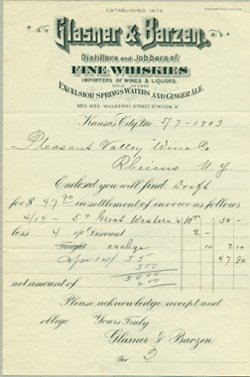 ESTABLISHED 1873
Glasner & Barzen,
Distillers and Jobbers of
FINE WHISKIES
IMPORTERS OF WINES & LIQUORS,
SOLE AGENTS
EXCELSIOR SPRINGS WATERS AND GINGER ALE.
MULBERRY STREET STATION "A"
Kansas City, Mo. 5/7-1903
Pleasant Valley Wine Co
Rheims N.Y.
Enclosed you will find Draft
for $ 47 90 in settlement of invoice as follows
4/14 - 5 Great Western 10 50 -
less 4 % Discount 2 -
Freight exchge 10 2.10
47.90
net amount of
Please acknowledge receipt and
oblige Yours Truly
Glasner & Barzen
Per